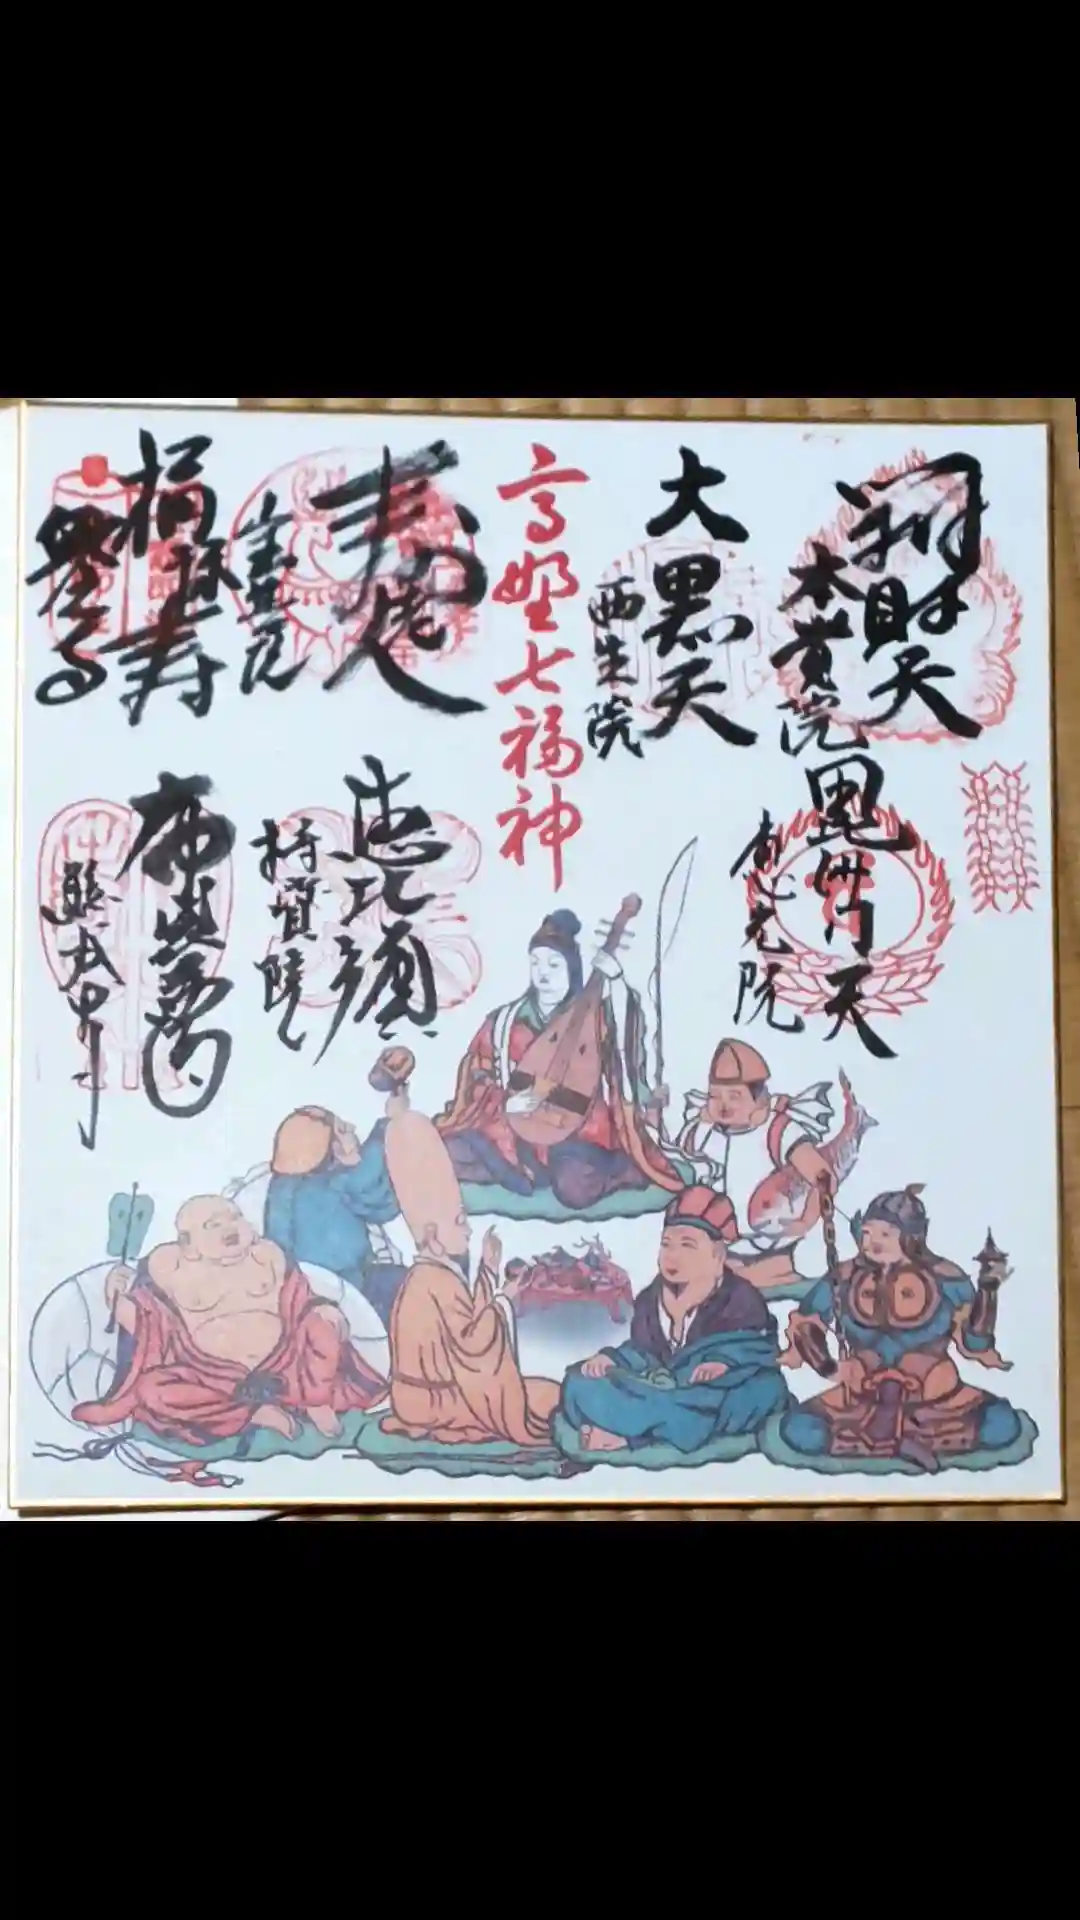 辨財天
本覚院
大黒天
西生院
高野七福神
寿老人
宝亀院
福禄寿
毘沙門天
恵光院
恵比須
持寳院
布袋尊
熊谷寺